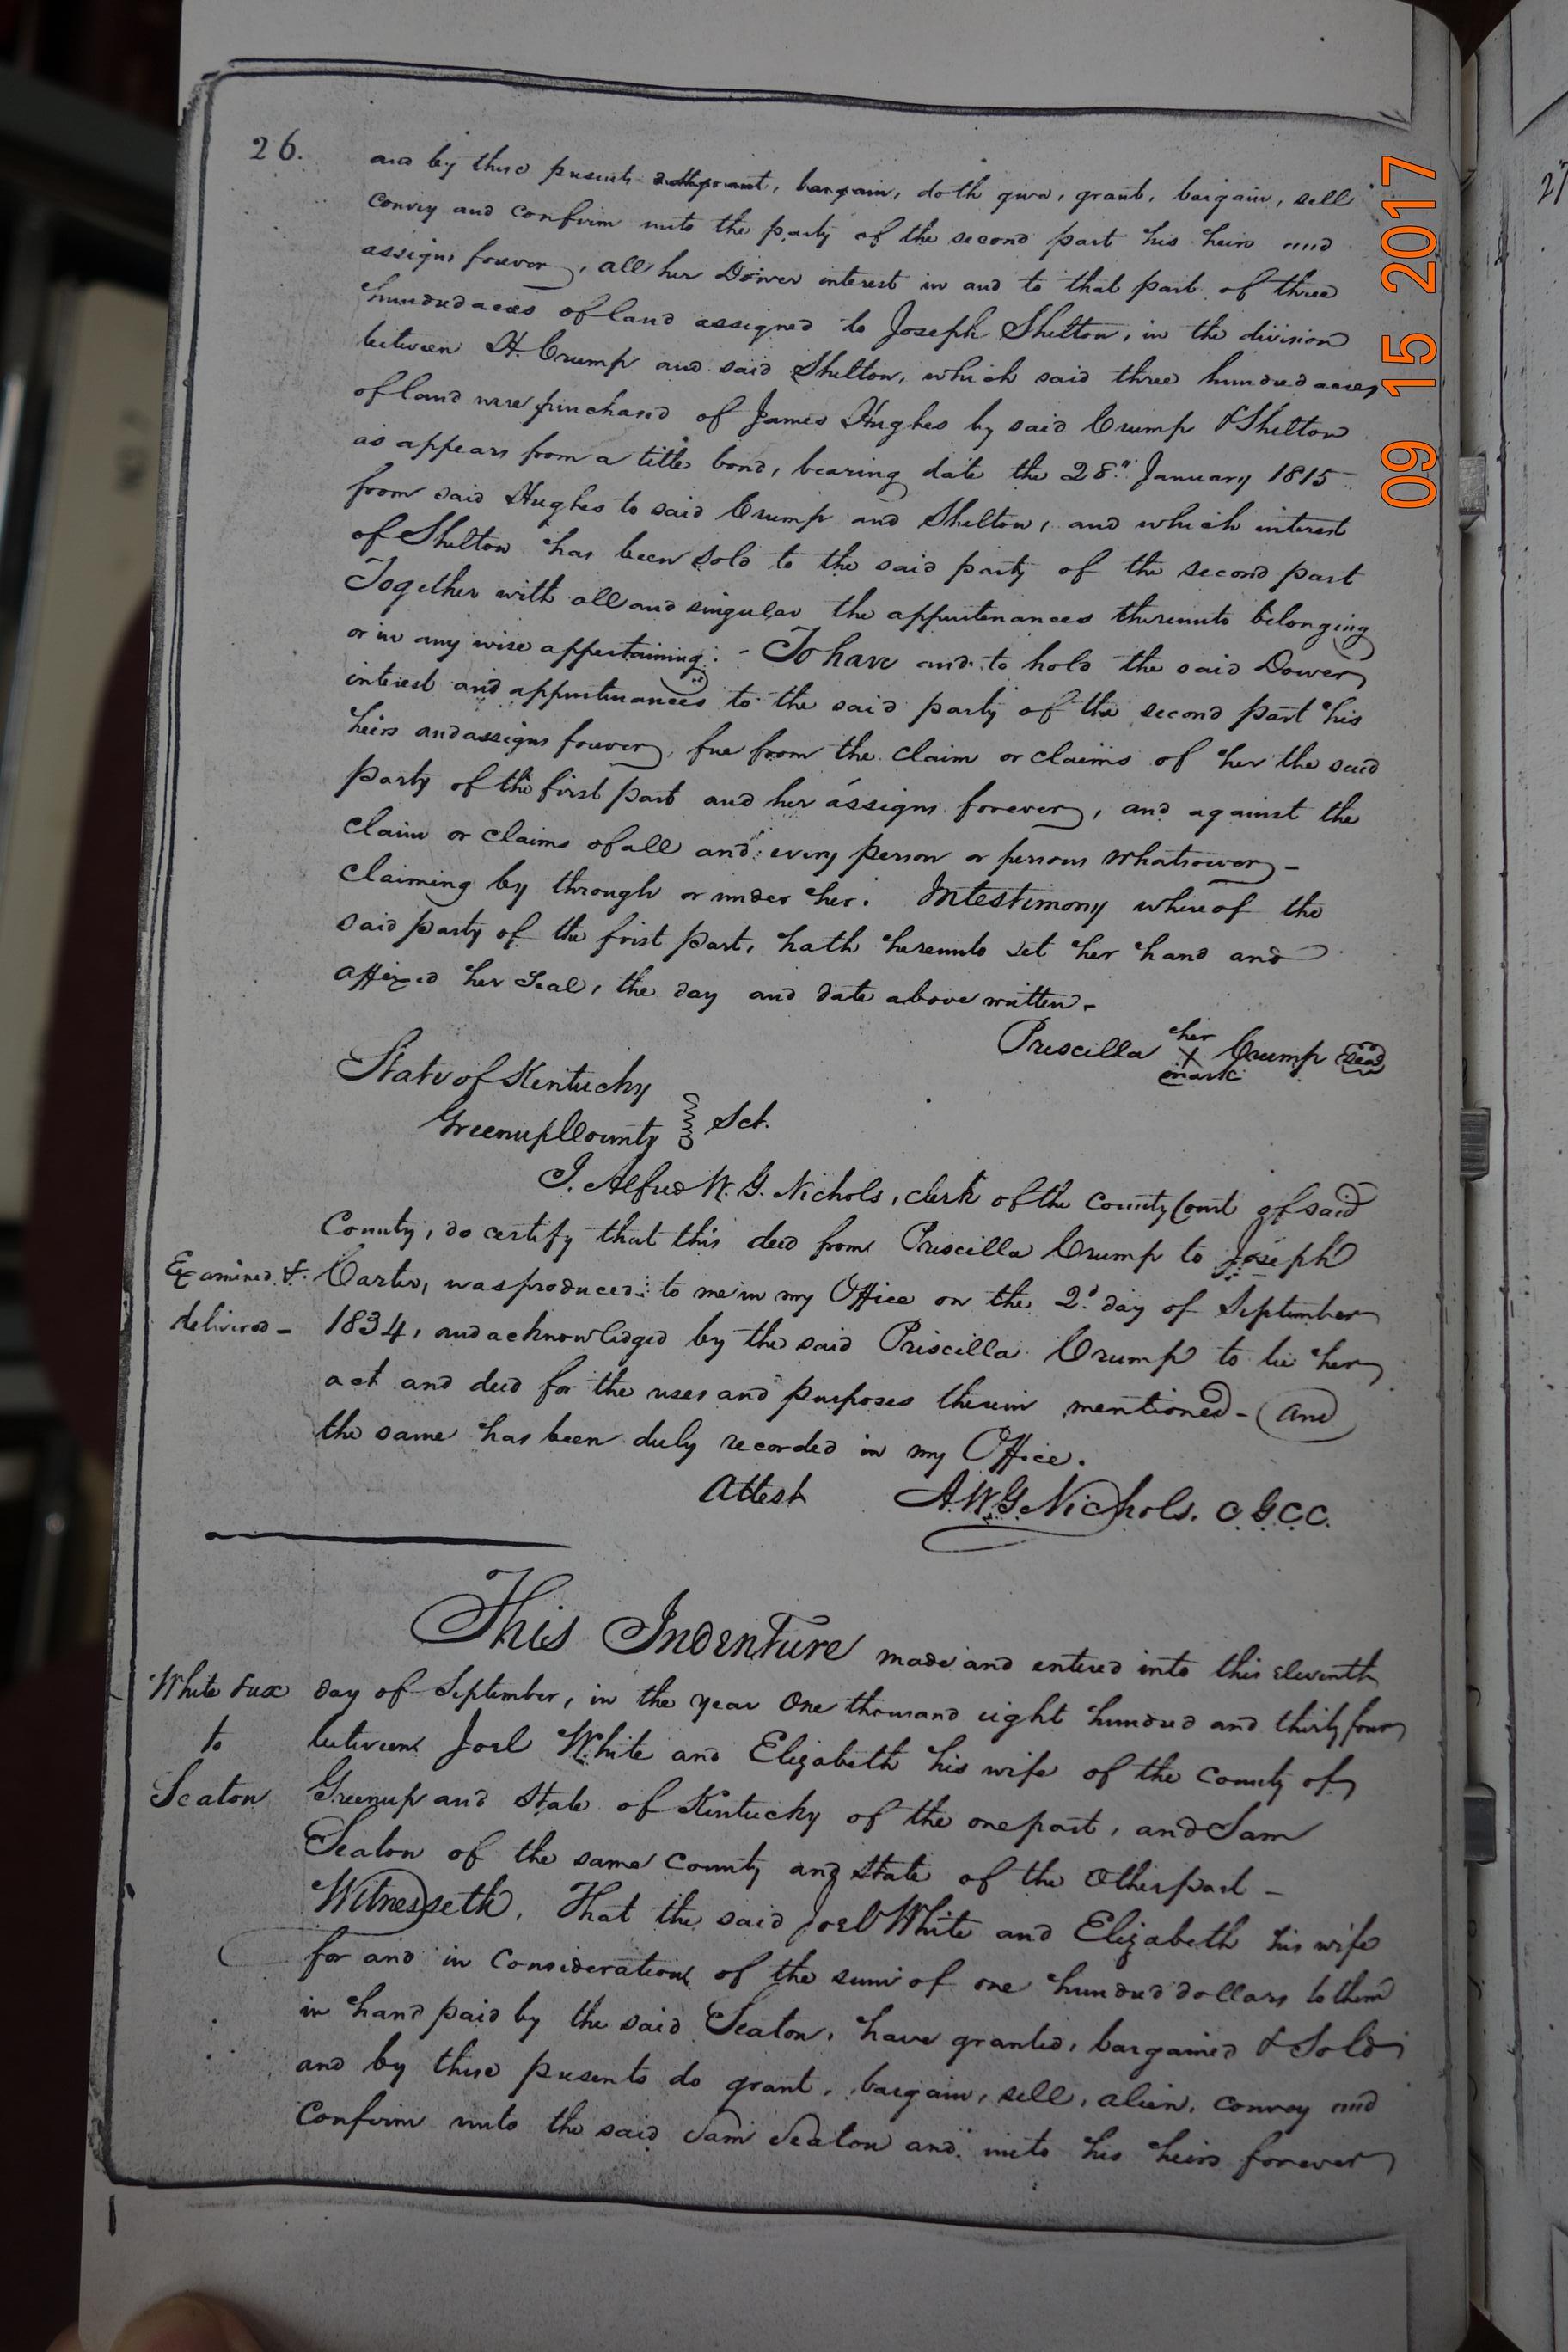 26.
and by these presents doth grant, bargain, doth give, grant, bargain, sell
convey and confirm unto the party of the second part his heirs and
assigns forever, all her Dower interest in and to that part of three
hundred acres of land assigned to Joseph Shelton, in the division
between H. Crump and said Shelton, which said three hundred acres
of land were purchased of James Hughes by said Crump & Shelton
as appears from a title bond, bearing date the 28th January 1815
from said Hughes to said Crump and Shelton, and which interest
of Shelton has been sold to the said party of the second part
Together with all and singular the appurtenances thereunto belonging
or in any wise appertaining:- To have and to hold the said Dower
interest and appurtenances to the said party of the second part his
heirs and assigns forever, free from the claim or claims of her the said
party of the first part and her assigns forever, and against the
claim or claims of all and every person or persons whatsoever -
claiming by through or under her. In testimony whereof the
said party of the first part, hath hereunto set her hand and
affixed her Seal, the day and date above written.-
Priscilla her X mark Crump Seal
State of Kentucky
Greenup County Sct.
I, Alfred W. G. Nichols, clerk of the County Court of said
County, do certify that this deed from Priscilla Crump to Joseph
Examined &
delivered -
Carter, was produced to me in my Office on the 2d day of September
1834, and acknowledged by the said Priscilla Crump to be her
act and deed for the uses and purposes therein mentioned - and
the same has been duly recorded in my Office.
Attest A.W.G. Nichols. C.G.C.C.
This Indenture made and entered into this eleventh
White & ux
to
Seaton
day of September, in the year One thousand eight hundred and thirty four
between Joel White and Elizabeth his wife of the County of
Greenup and State of Kentucky of the one part, and Sam
Seaton of the same County and State of the Other part -
Witnesseth, That the said Joel White and Elizabeth his wife
for and in Consideration of the sum of one hundred dollars to them
in hand paid by the said Seaton, have granted, bargained & Sold
and by these presents do grant, bargain, sell, alien, convey and
Confirm unto the said Sam Seaton and unto his heirs forever
09 15 2017
27